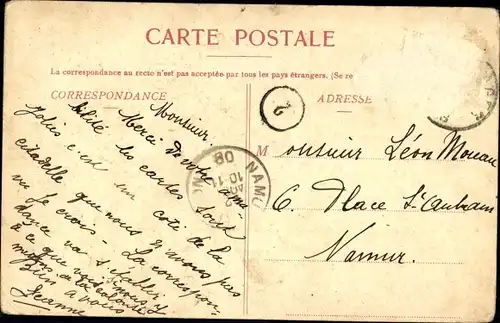 CARTE POSTALE
La correspondance au recto n'est pas acceptée par tous les pays étrangers. (Se re
CORRESPONDANCE
ADRESSE
2
NAMU
10-11
08
Monsieur,
Merci de votre ama-
bilité les cartes sont
jolies c'est un coté de la
citadelle que nous n'avons pas
vu je crois. La correspon
dance va s'établir
à ce que
bien à vous
Jeanne
Monsieur Léon Moreau
6. Place St Aubain
Namur.